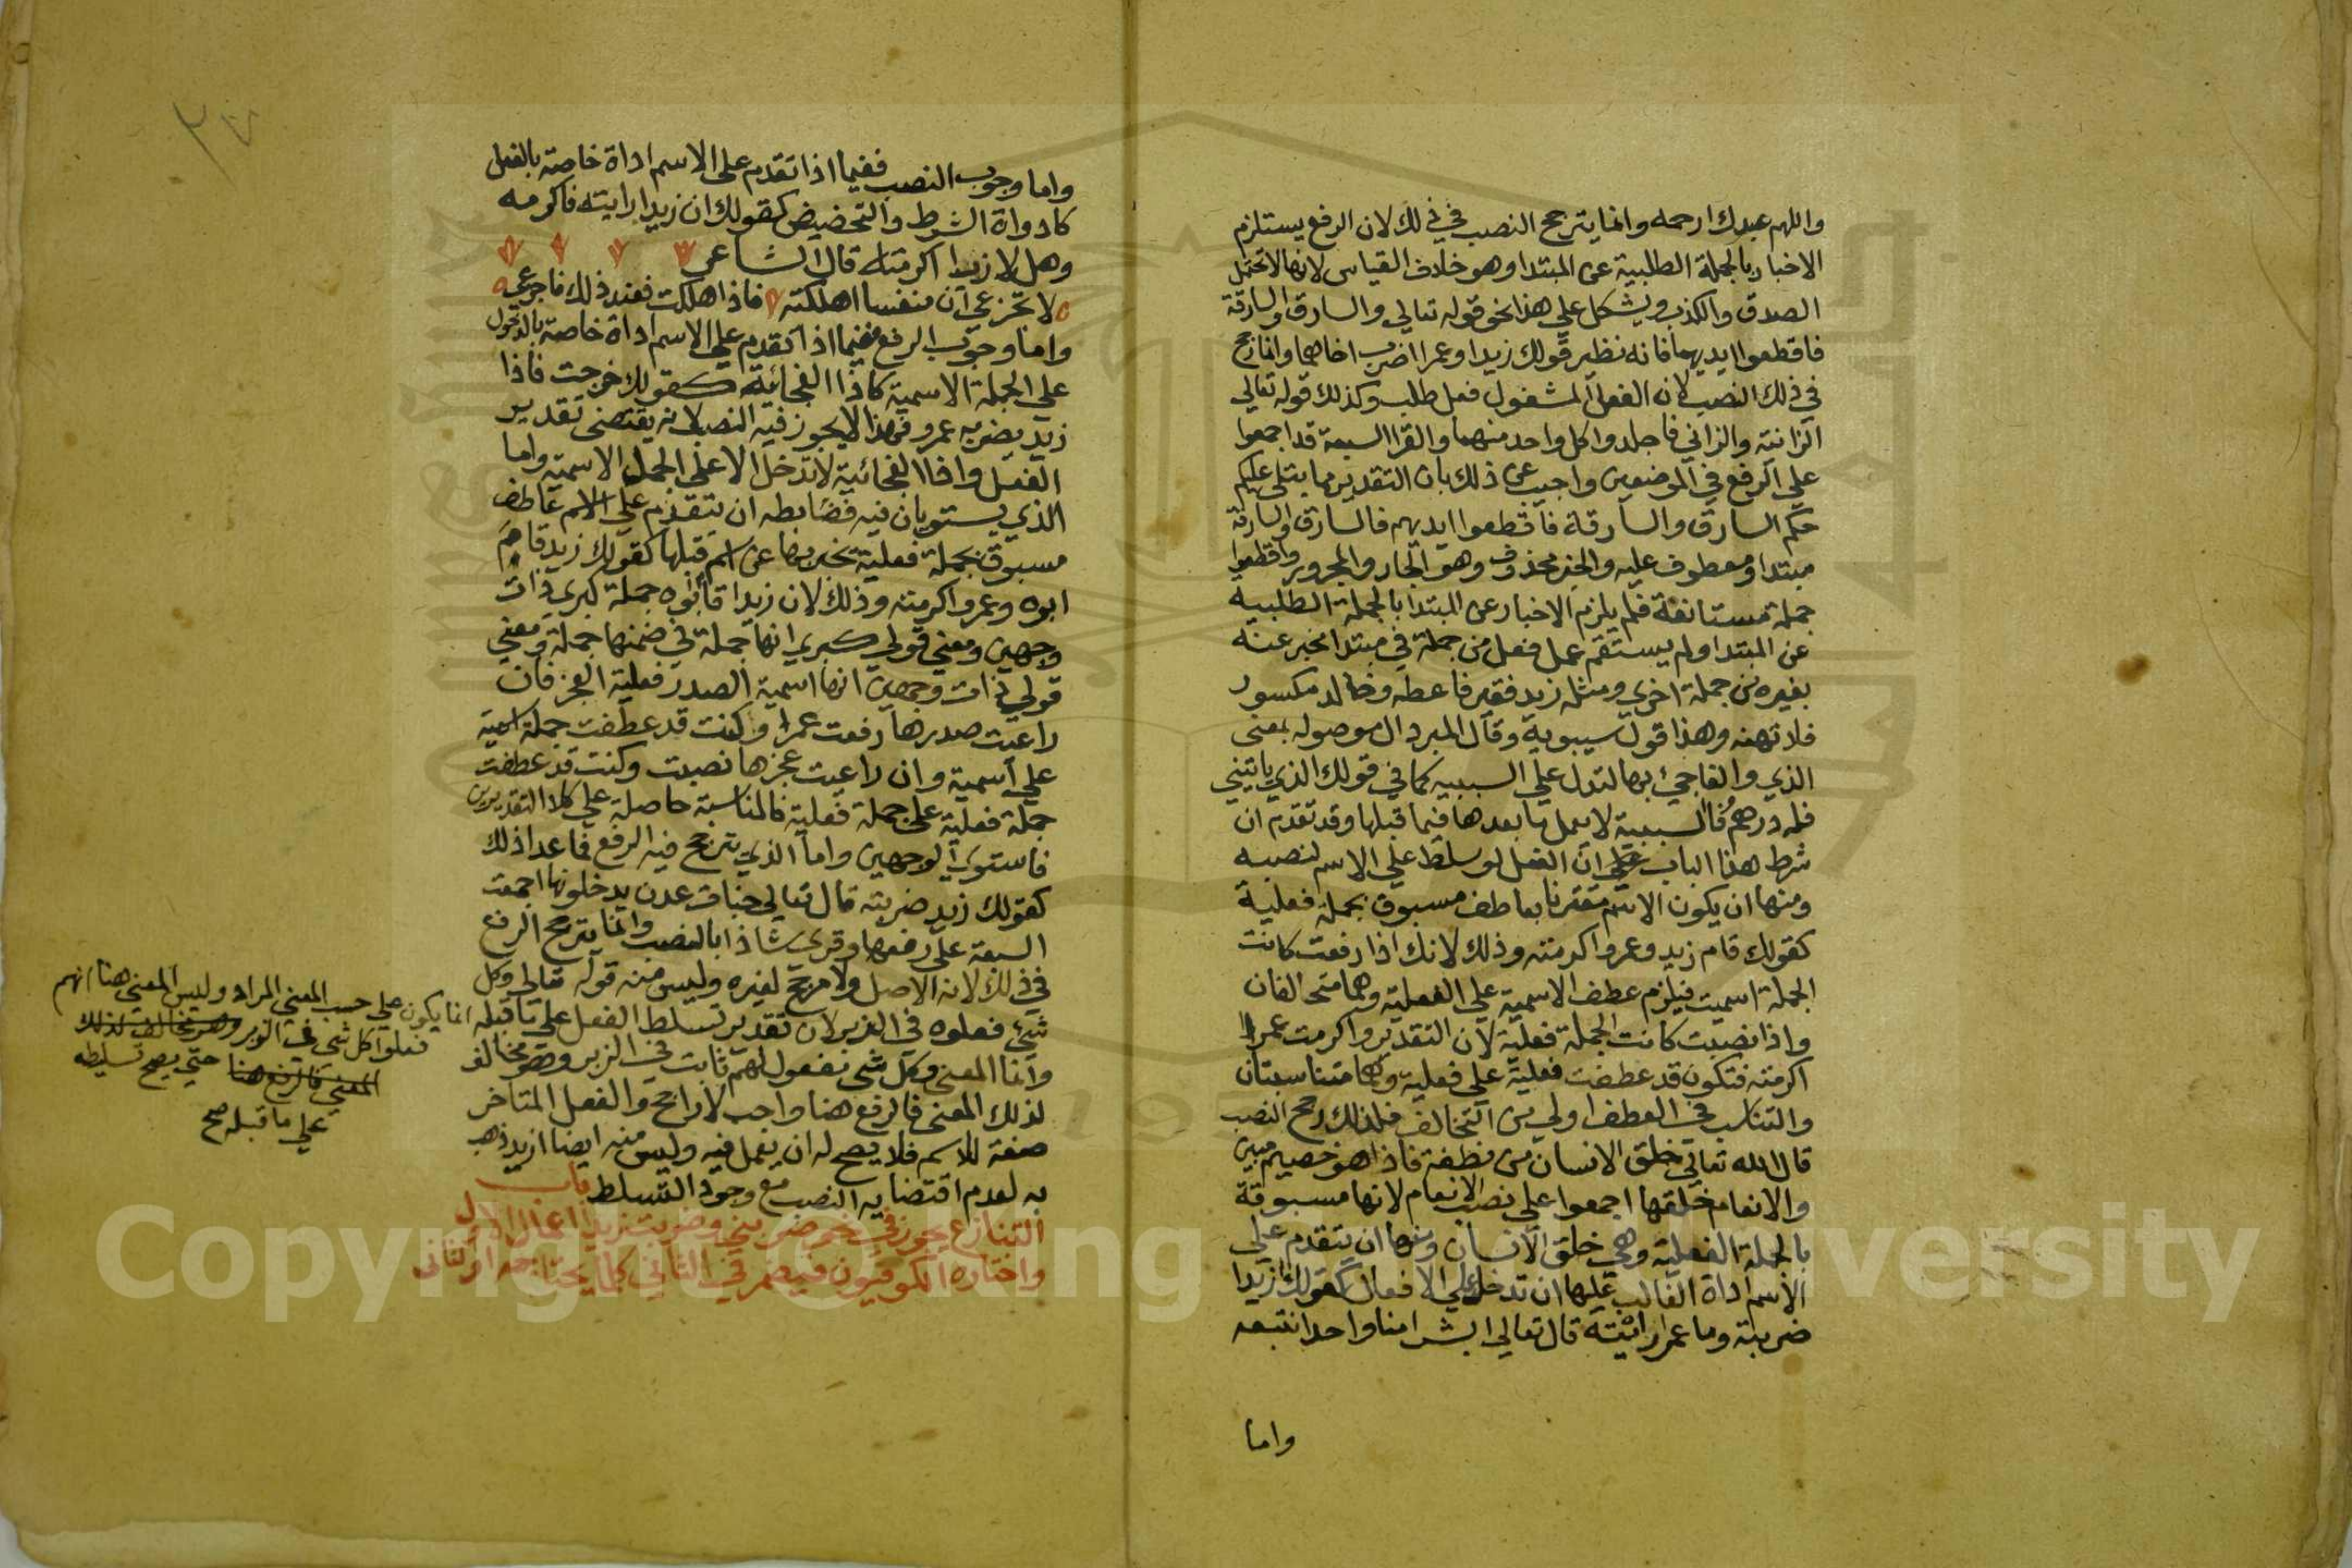 واللهم عبدك ارحمه وانما يترجح النصب في ذلك لان الرفع يستلزم
الاخبار بالجملة الطلبية عن المبتدا وهو خلاف القياس لانها لا تحتمل
الصدق والكذب ويشكل على هذا نحو قوله تعالى والسارق والسارقة
فاقطعوا ايديهما فانه نظير قولك زيدا وعمرا اضرب اخاهما وانما رجح
في ذلك النصب لان الفعل المشغول فعل طلب وكذلك قوله تعالى
الزانية والزاني فاجلدوا كل واحد منهما والقرا السبعة قد اجمعوا
على الرفع في الموضعين واجيب عن ذلك بان التقدير مما يتلى عليكم
حكم السارق والسارقة فاقطعوا ايديهم فالسارق والسارقة
مبتدا ومعطوف عليه والخبر محذوف وهو الجار والمجرور واقطعوا
جملة مستانفة فلم يلزم الاخبار عن المبتدا بالجملة الطلبية
عن المبتدا ولم يستقم عمل فعل من جملة في مبتدا مخبر عنه
بغيره من جملة اخرى ومثله زيد فقير فاعطه وخالد مكسور
فلا تهنه وهذا قول سيبويه وقال المبرد ال موصوله بمعنى
الذي والفا جيئ بها لتدل على السببيه كما في قولك الذي ياتيني
فله درهم فالسببية لا يعمل ما بعدها فيما قبلها وقد تقدم ان
شرط هذا الباب ان الفعل لو سلط على الاسم لنصبه
ومنها ان يكون الاسم مقترنا بعاطف مسبوق بجملة فعلية
كقولك قام زيد وعمروا اكرمته وذلك لانك اذا رفعت كانت
الجملة اسميت فيلزم عطف الاسمية على الفعلية وهما متخالفان
واذا نصبت كانت الجملة فعلية لان التقدير واكرمت عمرا
اكرمته فتكون قد عطفت فعلية على فعلية وهما متناسبتان
والتناسب في العطف اولى من التخالف فلذلك رجح النصب
قال الله تعالى خلق الانسان من نطفة فاذا هو خصيم مبين
والانعام خلقها اجمعوا على نصب الانعام لانها مسبوقة
بالجملة الفعلية وهي خلق الانسان ومنها ان يتقدم على
الاسم اداة الغالب عليها ان تدخل على الافعال كقولك ازيدا
ضربته وما عمرا رائيته قال تعالى ابشرا منا واحدا نتبعه
واما
واما وجوب النصب ففيما اذا تقدم على الاسم اداة خاصة بالفعل
كادواة الشرط والتحضيض كقولك ان زيدا رايته فاكرمه
وهل لا زيدا اكرمته قال الشاعر
لا تجزعي ان منفسا اهلكته فاذا هلكت فعند ذلك فاجزعي
واما وجوب الرفع ففيما اذا تقدم على الاسم اداة خاصة بالدخول
على الجملة الاسمية كاذا الفجائية كقولك خرجت فاذا
زيد يضربه عمرو فهذا لا يجوز فيه النصب لانه يقتضى تقدير
الفعل واذا الفجائية لا تدخل الا على الجمل الاسمية واما
الذي يستويان فيه فضابطه ان يتقدم على الاسم عاطف
مسبوق بجملة فعلية مخبر بها عن اسم قبلها كقولك زيد قام
ابوه وعمروا اكرمته وذلك لان زيدا قام ابوه جملة كبرى ذات
وجهين ومعنى قولي كبرى انها جملة في ضمنها جملة ومعنى
قولي ذات وجهين انها اسمية الصدر فعلية العجز فان
راعيت صدرها رفعت عمرا وكنت قد عطفت جملة اسمية
على اسمية وان راعيت عجزها نصبت وكنت قد عطفت
جملة فعلية على جملة فعلية فالمناسبة حاصلة على كلا التقديرين
فاستوى الوجهين واما الذي يترجح فيه الرفع فما عدا ذلك
كقولك زيد ضربته قال تعالى جنات عدن يدخلونها اجمعت
السبعة على رفعها وقرى شاذا بالنصب وانما يترجح الرفع
في ذلك لانه الاصل ولا مرجح لغيره وليس منه قوله تعالى وكل
شيئ فعلوه في الزبر لان تقدير تسلط الفعل على ما قبله
وانما المعنى وكل شي مفعول لهم ثابت في الزبر وهو مخالف
لذلك المعنى فالرفع هنا واجب لا راجح والفعل المتاخر
صفة للاسم فلا يصح له ان يعمل فيه وليس منه ايضا ازيد ذهب
به لعدم اقتضايه النصب مع وجود التسلط باب
التنازع يجوز في نحو ضربني وضربت زيدا اعمال الاول
واختاره الكوفيون فيضمر في الثاني كلما يحتاجه او الثاني
انما يكون على حسب المعنى المراد وليس المعنى هنا انهم
فعلوا كل شي في الزبر وهو مخالف لذلك
المعنى فالرفع هنا حتى يصح تسليطه
على ما قبله صح
٣٧
Copyright © King Saud University